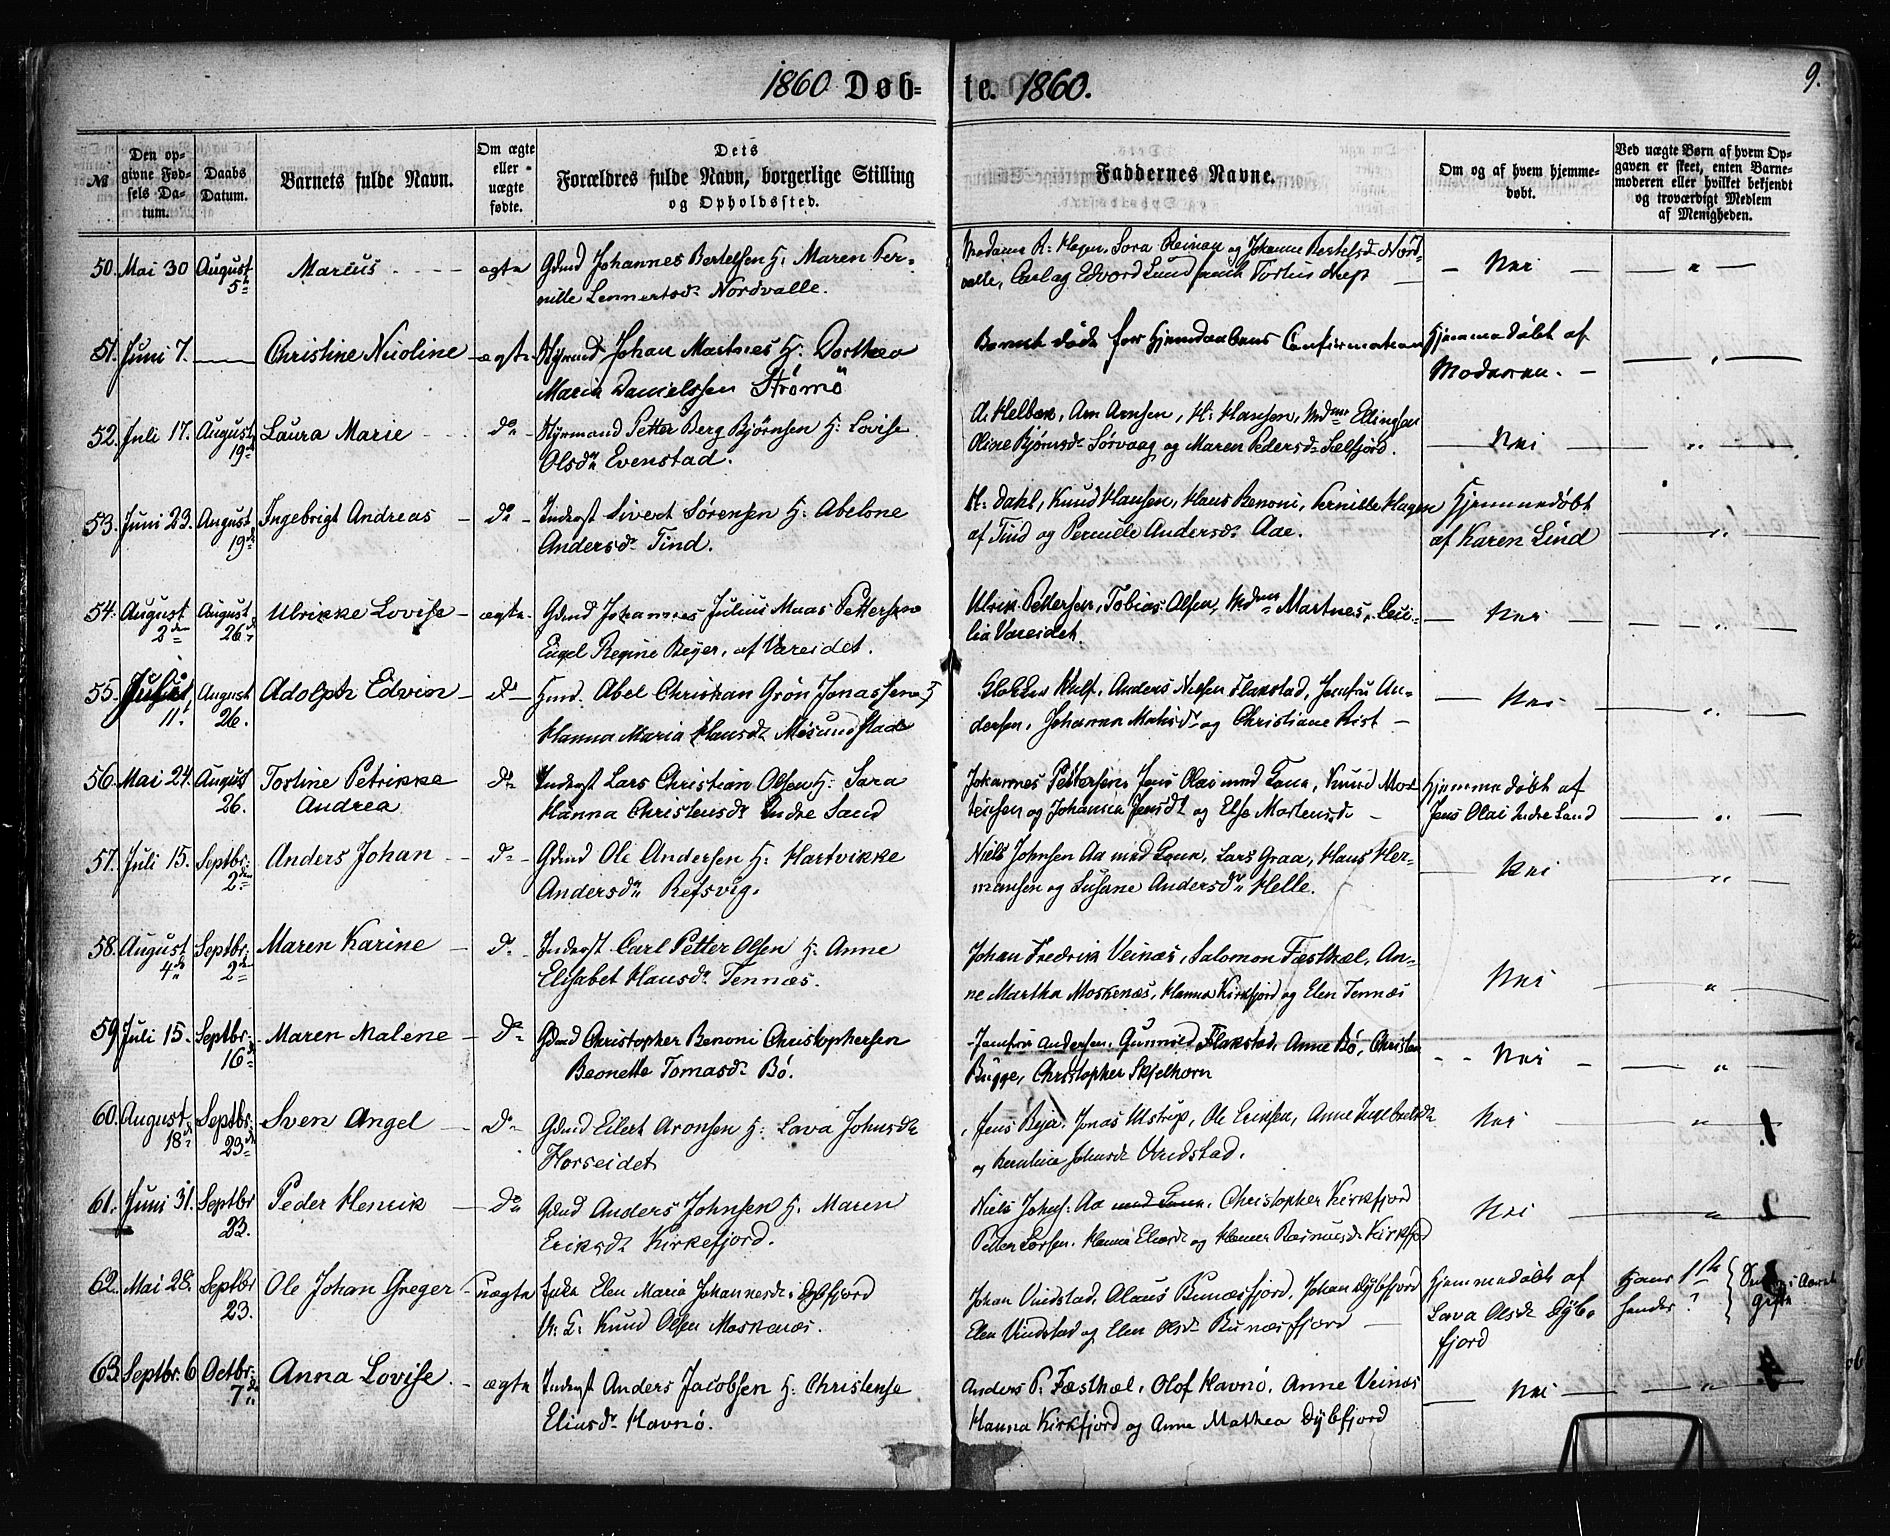 1860 Døb= te. 1860.
9.
№
Den op-
givne Fød-
sels Da-
tum.
Daabs
Datum.
Barnets fulde Navn.
Om ægte
eller
uægte
fødte.
Dets
Forældres fulde Navn, borgerlige Stilling
og Opholdssted.
Faddernes Navne.
Om og af hvem hjemme-
døbt.
Ved uægte Børn af hvem Op-
gaven er skeet, enten Barne-
moderen eller hvilket bekjendt
og troværdigt Medlem
af Menigheden.
50. Mai 30 August 5te Marius ægte Gdmd Johannes Bertelsen H: Maren Per-
nille Lennertsdr Nordvalle.
Madame R: Hagen, Sara Reinan og Johanne Bertelsdr Nord-
valle, Edvord Lund
Nei
51. Juni 7. Christine Nicoline ægte Styrmd Johan Martnes H: Dorthea
Maria Danielssen Strømø
Barnet døde før Hjemdaabens Confirmation
Hjemmedøbt af
Moderen.
52. Juli 17. August 19de Laura Marie Do Styrmand Petter Berg Bjørnsen H: Lovise
Olsdr Evenstad.
A: Helbæk, Arn Arnsen, H: Hansen, Mdme Ellingsen
Oline Bjørnsdr Sørvaag og Maren Pedersdr Selfjord.
Nei
53. Juni 23. August 19de Ingebrigt Andreas Do Inderst Sivert Sørensen H: Abelone
Andersdr Tind.
H: Dahl, Knud Hansen, Hans Benoni, Pernille Hagen
af Tind og Pernille Andersdr Aae.
Hjemmedøbt
af Karen Lind
54. August 2den August 26de Ulrikke Lovise ægte Gdmd Johannes Julius Maas Pettersen
Engel Regine Beyer, af Vareidet.
Ulrik Pettersen, Tobias Olsen, Mdme Martnes, Ceci-
lia Vareidet.
Nei
55. Juli 11. August 26. Adolph Edvin Do Hmd. Abel Christian Grön Jonassen H
Hanna Maria Hansdr Mösundstad
Klokker Hulf, Anders Nielsen Flakstad, Jomfru An-
dersen, Johanna Mathisdr og Christiane Rist
Nei
56. Mai 24. August 26. Tostine Petrikke
Andrea
Do Inderst Lars Christian Olsen H: Sara
Hanna Christensdr Indre Sand
Johannes Pettersen, Jens Olai med Kone, Knud Mor-
tensen og Johanna Jensdr og Else Mortensdr
Hjemmedøbt af
Jens Olai Indre Sand
57. Juli 15. Septbr. 2den Anders Johan Do Gdmd Ole Andersen H: Hartvikke
Andersdr Refsvig.
Niels Johnsen Aa med Kone, Lars Graa, Hans Her-
mansen og Susane Andersdr Helle.
Nei
58. August 4de Septbr. 2den Maren Karine Do Inderst Carl Petter Olsen H: Anne
Elisabet Hansdr Tennæs.
Johan Fredrik Veinæs, Salomon Fæsthæl, An-
ne Martha Moskenæs, Hanna Kirkfjord og Elen Tennæs
Nei
59. Juli 15. Septbr. 16de Maren Malene Do Gdmd Christopher Benoni Christophersen
Beonette Tomasdr Bø.
Jomfru Andersen, Gunnild Flakstad, Anne Bø, Christen
Bugge, Christopher Skjelhorn
Nei
60. August 18de Septbr. 23de Sven Angel Do Gdmd Eilert Aronsen H: Lava Johnsdr
Horseidet
Jens Beyer, Jonas Ulstrup, Ole Eriksen, Anne Ingebretsdr
og Johnsdr Vindstad.
Nei
61. Juni 31. Septbr 23. Peder Henrik Do Gdmd Anders Johnsen H: Maren
Eriksdr Kirkefjord.
Niels Johns: Aa med Kone, Christopher Kirkfjord
Peder Larsen, Hanna og Rasmusdr Kirkfjord
Nei
62. Mai 28. Septbr 23. Ole Johan Greger uægte Enke Elen Maria Johannesdr Dybfjord
U: K: Knud Olsen Moskenæs.
Johan Vindstad, Olaus Bunæsfjord, Johan Dybfjord
Elen Vindstad og Elen Olsdr Bunæsfjord
Hjemmedøbt af
Lava Olsdr Dyb-
fjord
Hans 1ste
hendes ?
63. Septbr. 6 Octbr. 7de Anna Lovise. ægte Inderst Anders Jacobsen H: Christense
Eliasdr Havnø.
Anders P: Fæsthæl, Olof Havnø, Anne Veinæs
Hanna Kirkfjord og Anne Mathea Dybfjord
Nei